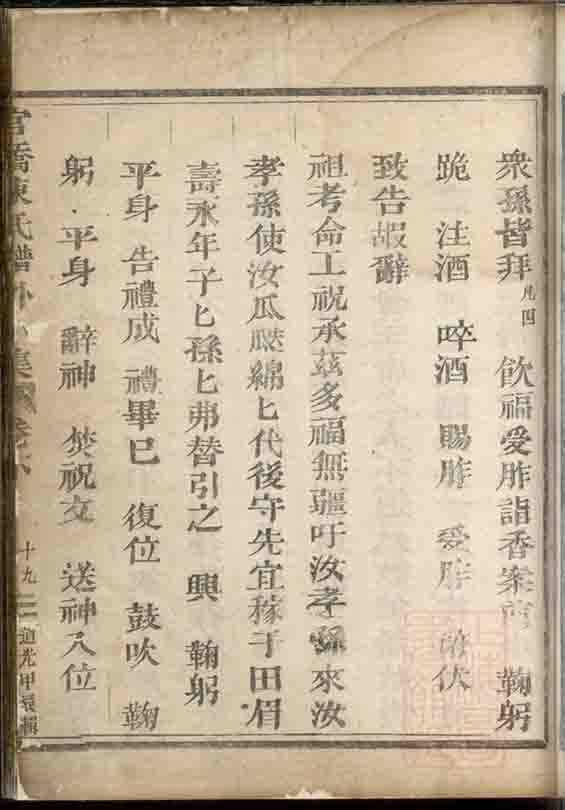 衆孫皆拜凡四 飲福受胙詣香案前 鞠躬
跪 注酒 啐酒 賜胙 受胙 俯伏
致告嘏辭
祖考命工祝承玆多福無疆吁汝孝孫來汝
孝孫使汝瓜瓞綿匕代後守先宜稼于田眉
壽永年子匕孫匕弗替引之 興 鞠躬
平身 告禮成 禮畢巳 復位 鼓吹 鞠
躬 平身 辭神 焚祝文 送神入位
官橋陳氏譜外 集 卷六 十九 道光甲辰輯